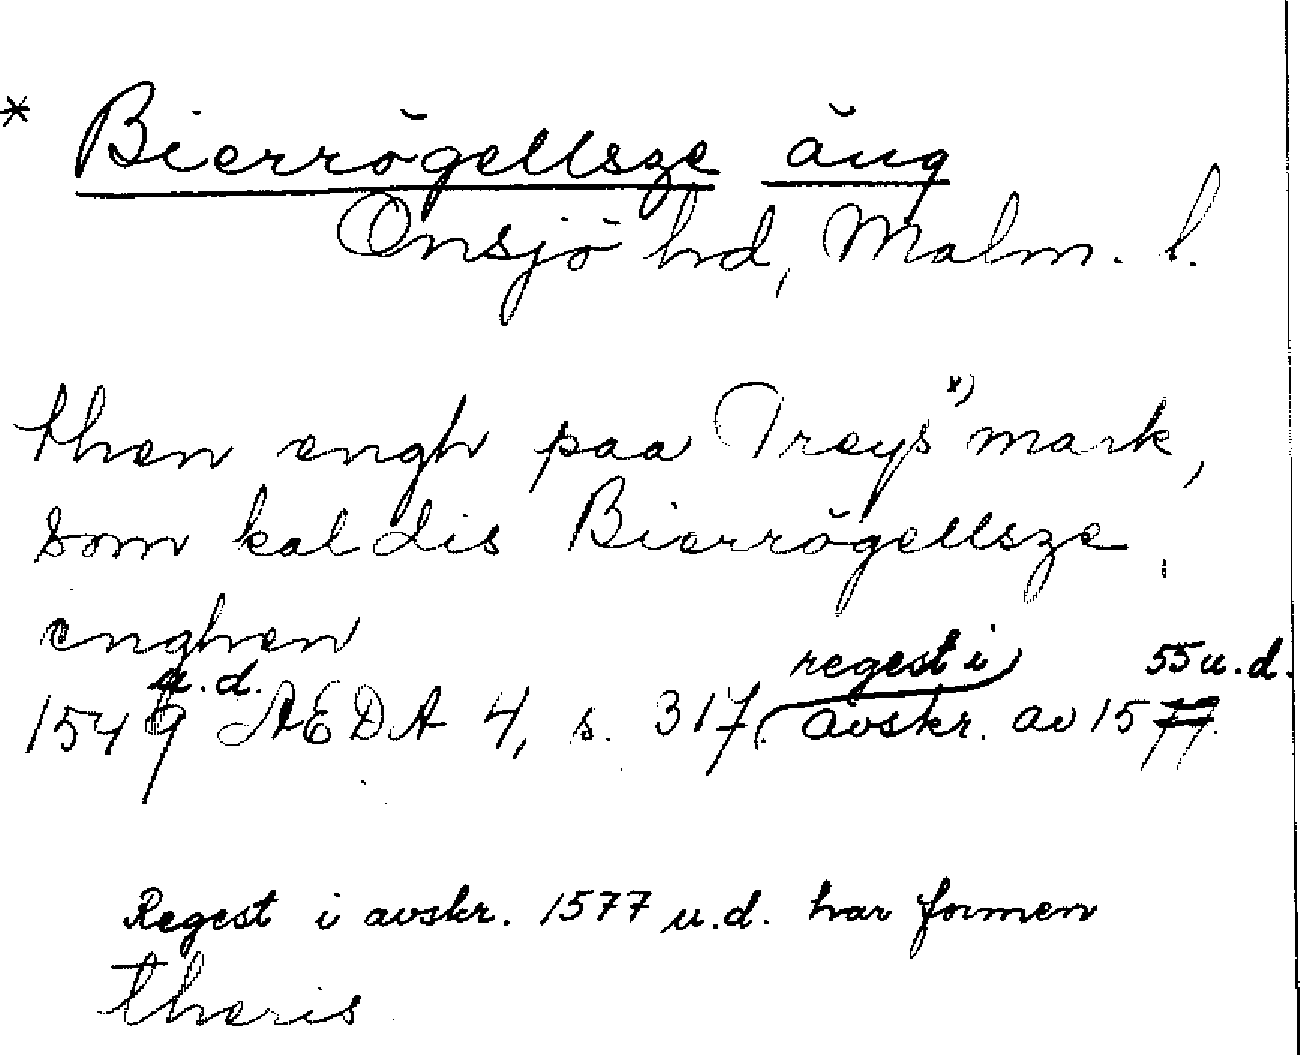 * Bierrögellsze äng
Onsjö hd, Malm. l.
then engh paa Treys x) mark,
som kaldis Bierrögellsze
enghen
1549 u.d. AEDA 4, s. 317. (regest i) avskr. av 1577 55 u.d.
Regest i avskr. 1577 u.d. har formen
theris